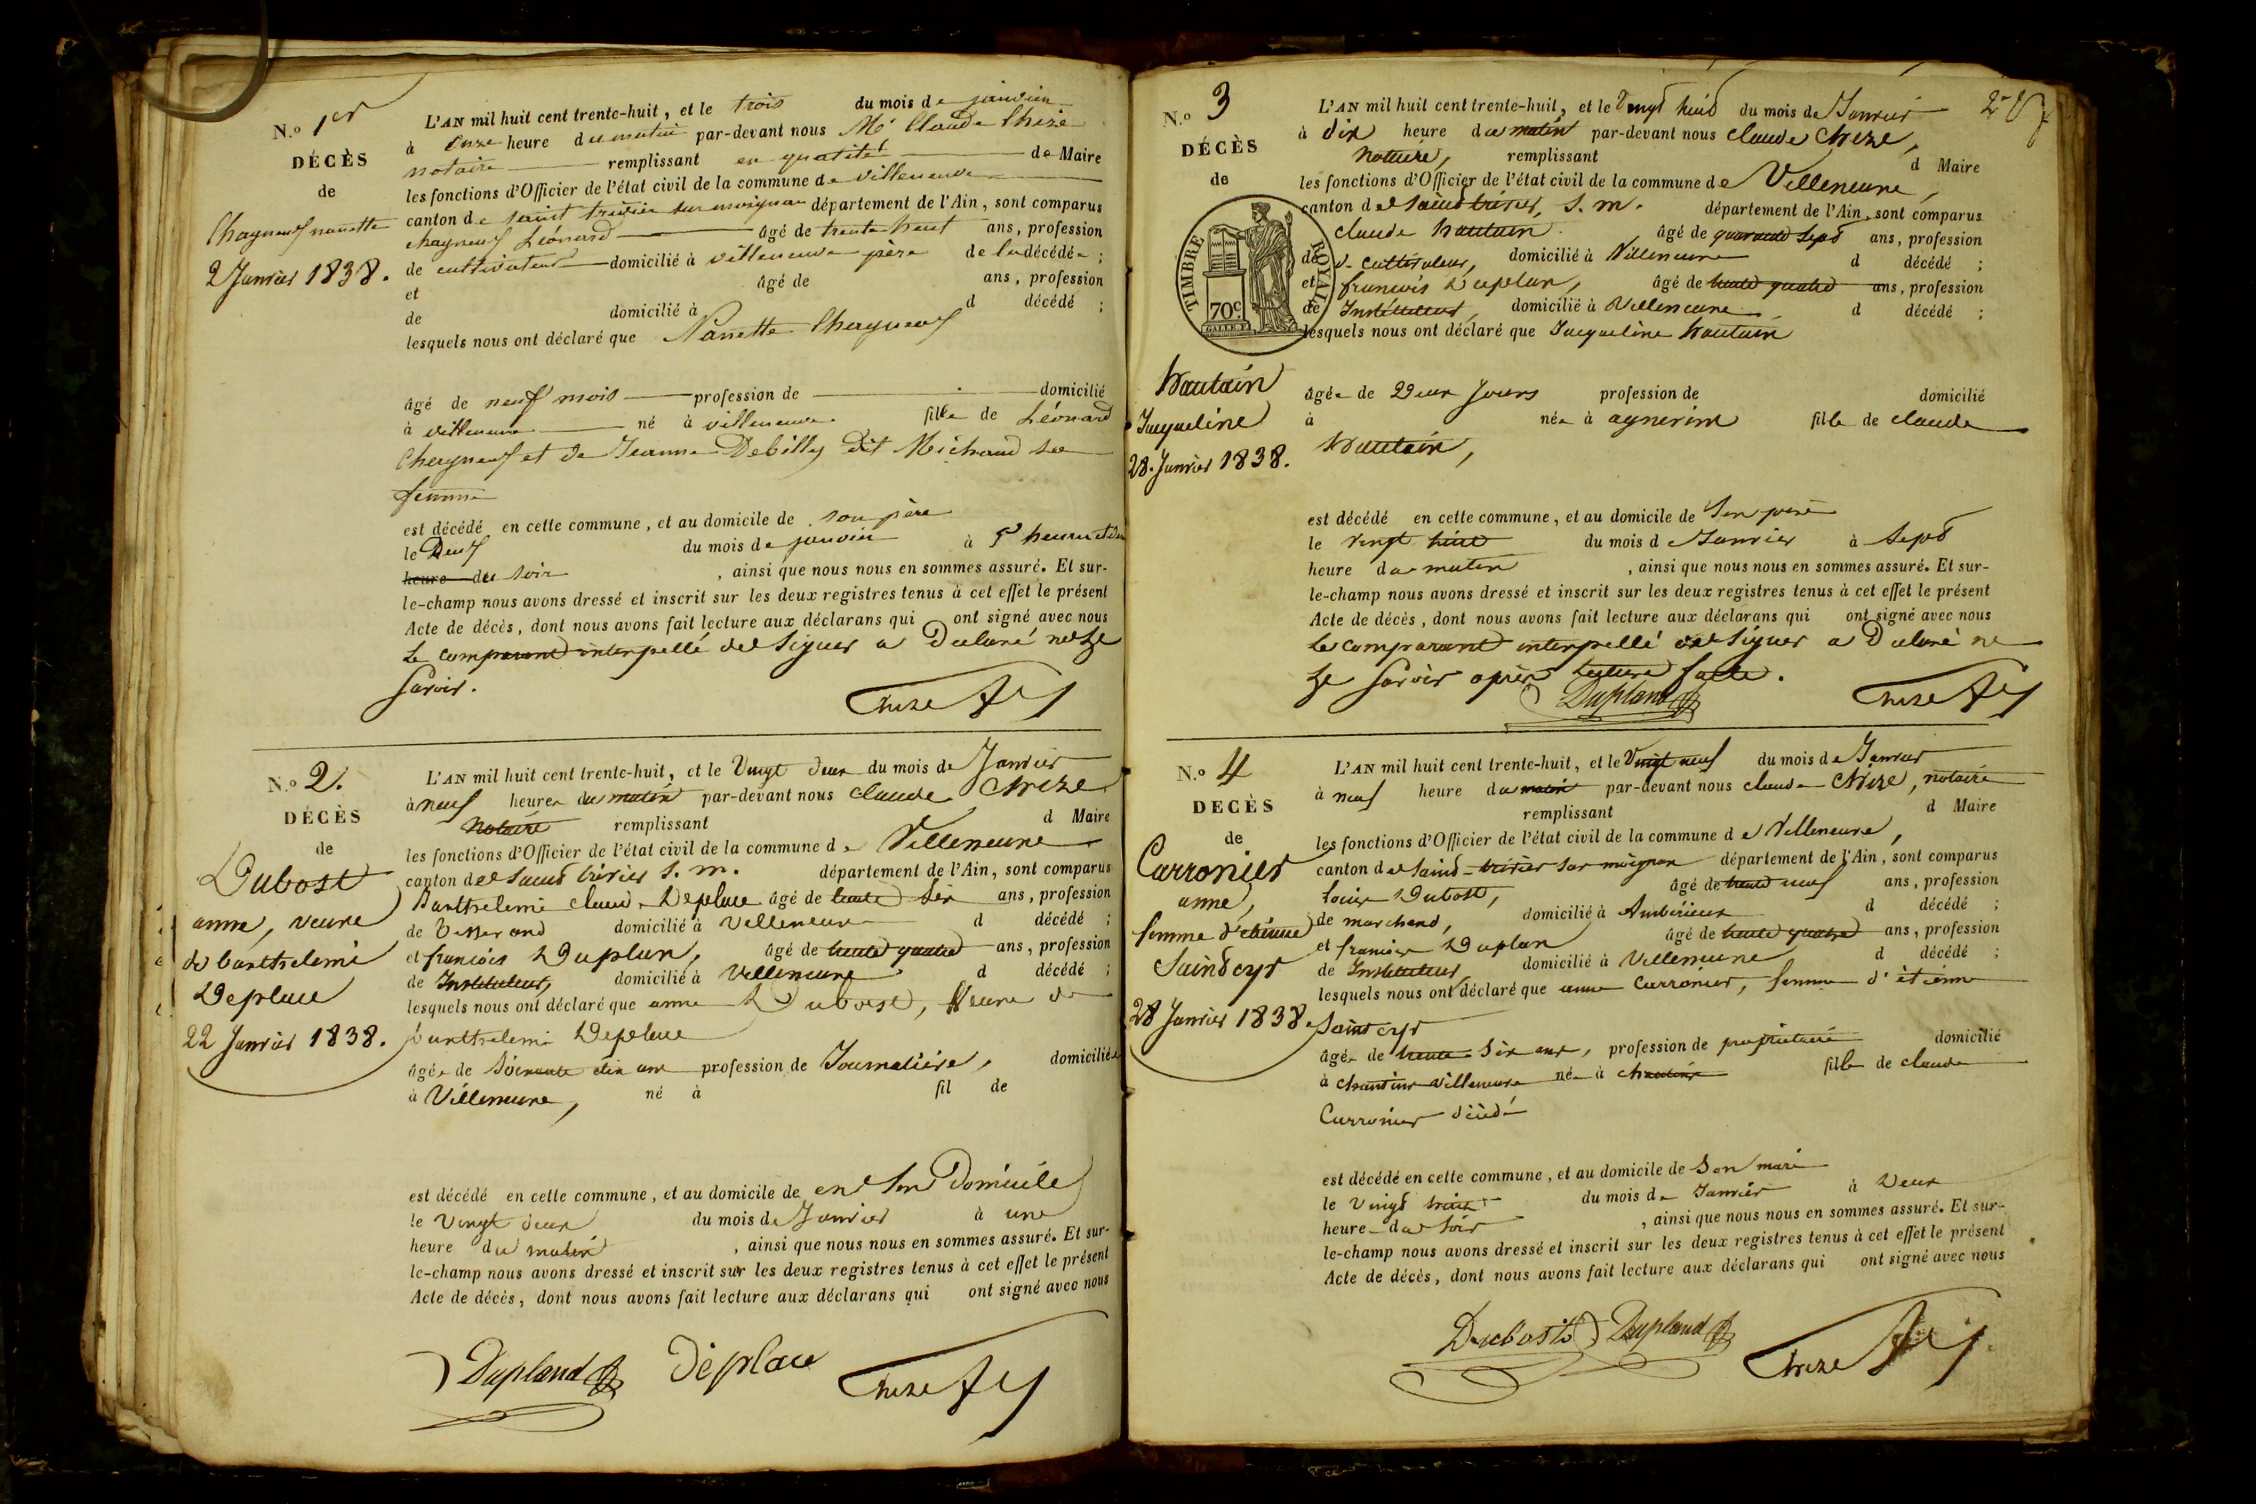 N.º 1er
DÉCÈS
de
Chagneuf nanette
2 Janvier 1838.
L'AN mil huit cent trente-huit, et le trois du mois de janvier
à onze heure du matin par-devant nous Me Claude Chize
notaire remplissant en qualité de Maire
les fonctions d'Officier de l'état civil de la commune de villeneuve
canton de saint trivier sur moignan département de l'Ain, sont comparus
chagneuf Léonard âgé de trente huit ans, profession
de cultivateur domicilié à villeneuve père de la décédée ;
et âgé de ans, profession
de domicilié à d décédé ;
lesquels nous ont déclaré que Nanette Chagneuf
âgé de neuf mois profession de domicilié
à villeneuve né à villeneuve fille de Léonard
Chagneuf et de Jeanne Debilly dit Michaud sa
femme
est décédé en cette commune, et au domicile de son père
le Deux du mois de janvier à 5 heures et
heure du soir , ainsi que nous nous en sommes assuré. Et sur-
le-champ nous avons dressé et inscrit sur les deux registres tenus à cet effet le présent
Acte de décès, dont nous avons fait lecture aux déclarans qui ont signé avec nous
Le comparant interpellé de Signer a Déclaré ne Le
Savoir.
Chize
N.º 2.
DÉCÈS
de
Dubost
anne, veuve
de barthelemi
Deplace
22 Janvier 1838.
L'AN mil huit cent trente-huit, et le Vingt deux du mois de Janvier
à neuf heure du matin par-devant nous claude Chize
Notaire remplissant d Maire
les fonctions d'Officier de l'état civil de la commune de Villeneuve
canton de Saint trivier S. m. département de l'Ain, sont comparus
Barthelemi claude Deplace âgé de trente Six ans, profession
de Tisserand domicilié à Villeneuve d décédé ;
et francois Duplan, âgé de trente quatre ans, profession
de Instituteur, domicilié à Villeneuve d décédé ;
lesquels nous ont déclaré que anne Dubost, Veuve de
barthelemi Deplace
âgée de Soixante dix ans profession de Journaliere, domiciliée
à Villeneuve, né à fil de
est décédé en cette commune, et au domicile de en Son Domicile
le Vingt deux du mois de Janvier à une
heure du matin , ainsi que nous nous en sommes assuré. Et sur-
le-champ nous avons dressé et inscrit sur les deux registres tenus à cet effet le présent
Acte de décès, dont nous avons fait lecture aux déclarans qui ont signé avec nous
Dupland Déplace Chize
N.º 3
DÉCÈS
de
TIMBRE ROYAL
70c
Jacqueline
28. Janvier 1838.
L'AN mil huit cent trente-huit, et le Vingt huit du mois de Janvier
à dix heure du matin par-devant nous claude Chize,
Notaire, remplissant d Maire
les fonctions d'Officier de l'état civil de la commune de Villeneuve,
canton de Saint trivier, S. m. département de l'Ain, sont comparus
claude âgé de quarante Sept ans, profession
de cultivateur, domicilié à Villeneuve d décédé ;
et francois Duplan, âgé de trente quatre ans, profession
de Instituteur, domicilié à Villeneuve d décédé ;
lesquels nous ont déclaré que Jacqueline
âgée de Deux Jours profession de domicilié
à née à fille de claude
est décédé en cette commune, et au domicile de Son père
le vingt huit du mois de Janvier à Sept
heure du matin , ainsi que nous nous en sommes assuré. Et sur-
le-champ nous avons dressé et inscrit sur les deux registres tenus à cet effet le présent
Acte de décès, dont nous avons fait lecture aux déclarans qui ont signé avec nous
Le comparant interpellé de Signer a Déclaré ne
Le Savoir après lecture faite.
Dupland Chize
N.º 4
DÉCÈS
de
Carronier
anne,
femme d'étienne
Saint cyr
28 Janvier 1838.
L'AN mil huit cent trente-huit, et le Vingt neuf du mois de Janvier
à neuf heure du matin par-devant nous claude Chize, notaire
remplissant d Maire
les fonctions d'Officier de l'état civil de la commune de Villeneuve,
canton de Saint-trivier Sur moignan département de l'Ain, sont comparus
Louis Dubost, âgé de trente neuf ans, profession
de marchand, domicilié à Ambérieux d décédé ;
et francois Duplan âgé de trente quatre ans, profession
de Instituteur, domicilié à Villeneuve d décédé ;
lesquels nous ont déclaré que anne Carronier, femme d'étienne
Saint cyr
âgée de trente Six ans, profession de propriétaire domicilié
à villeneuve née à fille de claude
Carronier
est décédé en cette commune, et au domicile de Son mari
le Vingt huit du mois de Janvier à Deux
heure du Soir , ainsi que nous nous en sommes assuré. Et sur-
le-champ nous avons dressé et inscrit sur les deux registres tenus à cet effet le présent
Acte de décès, dont nous avons fait lecture aux déclarans qui ont signé avec nous
Dubost Dupland Chize